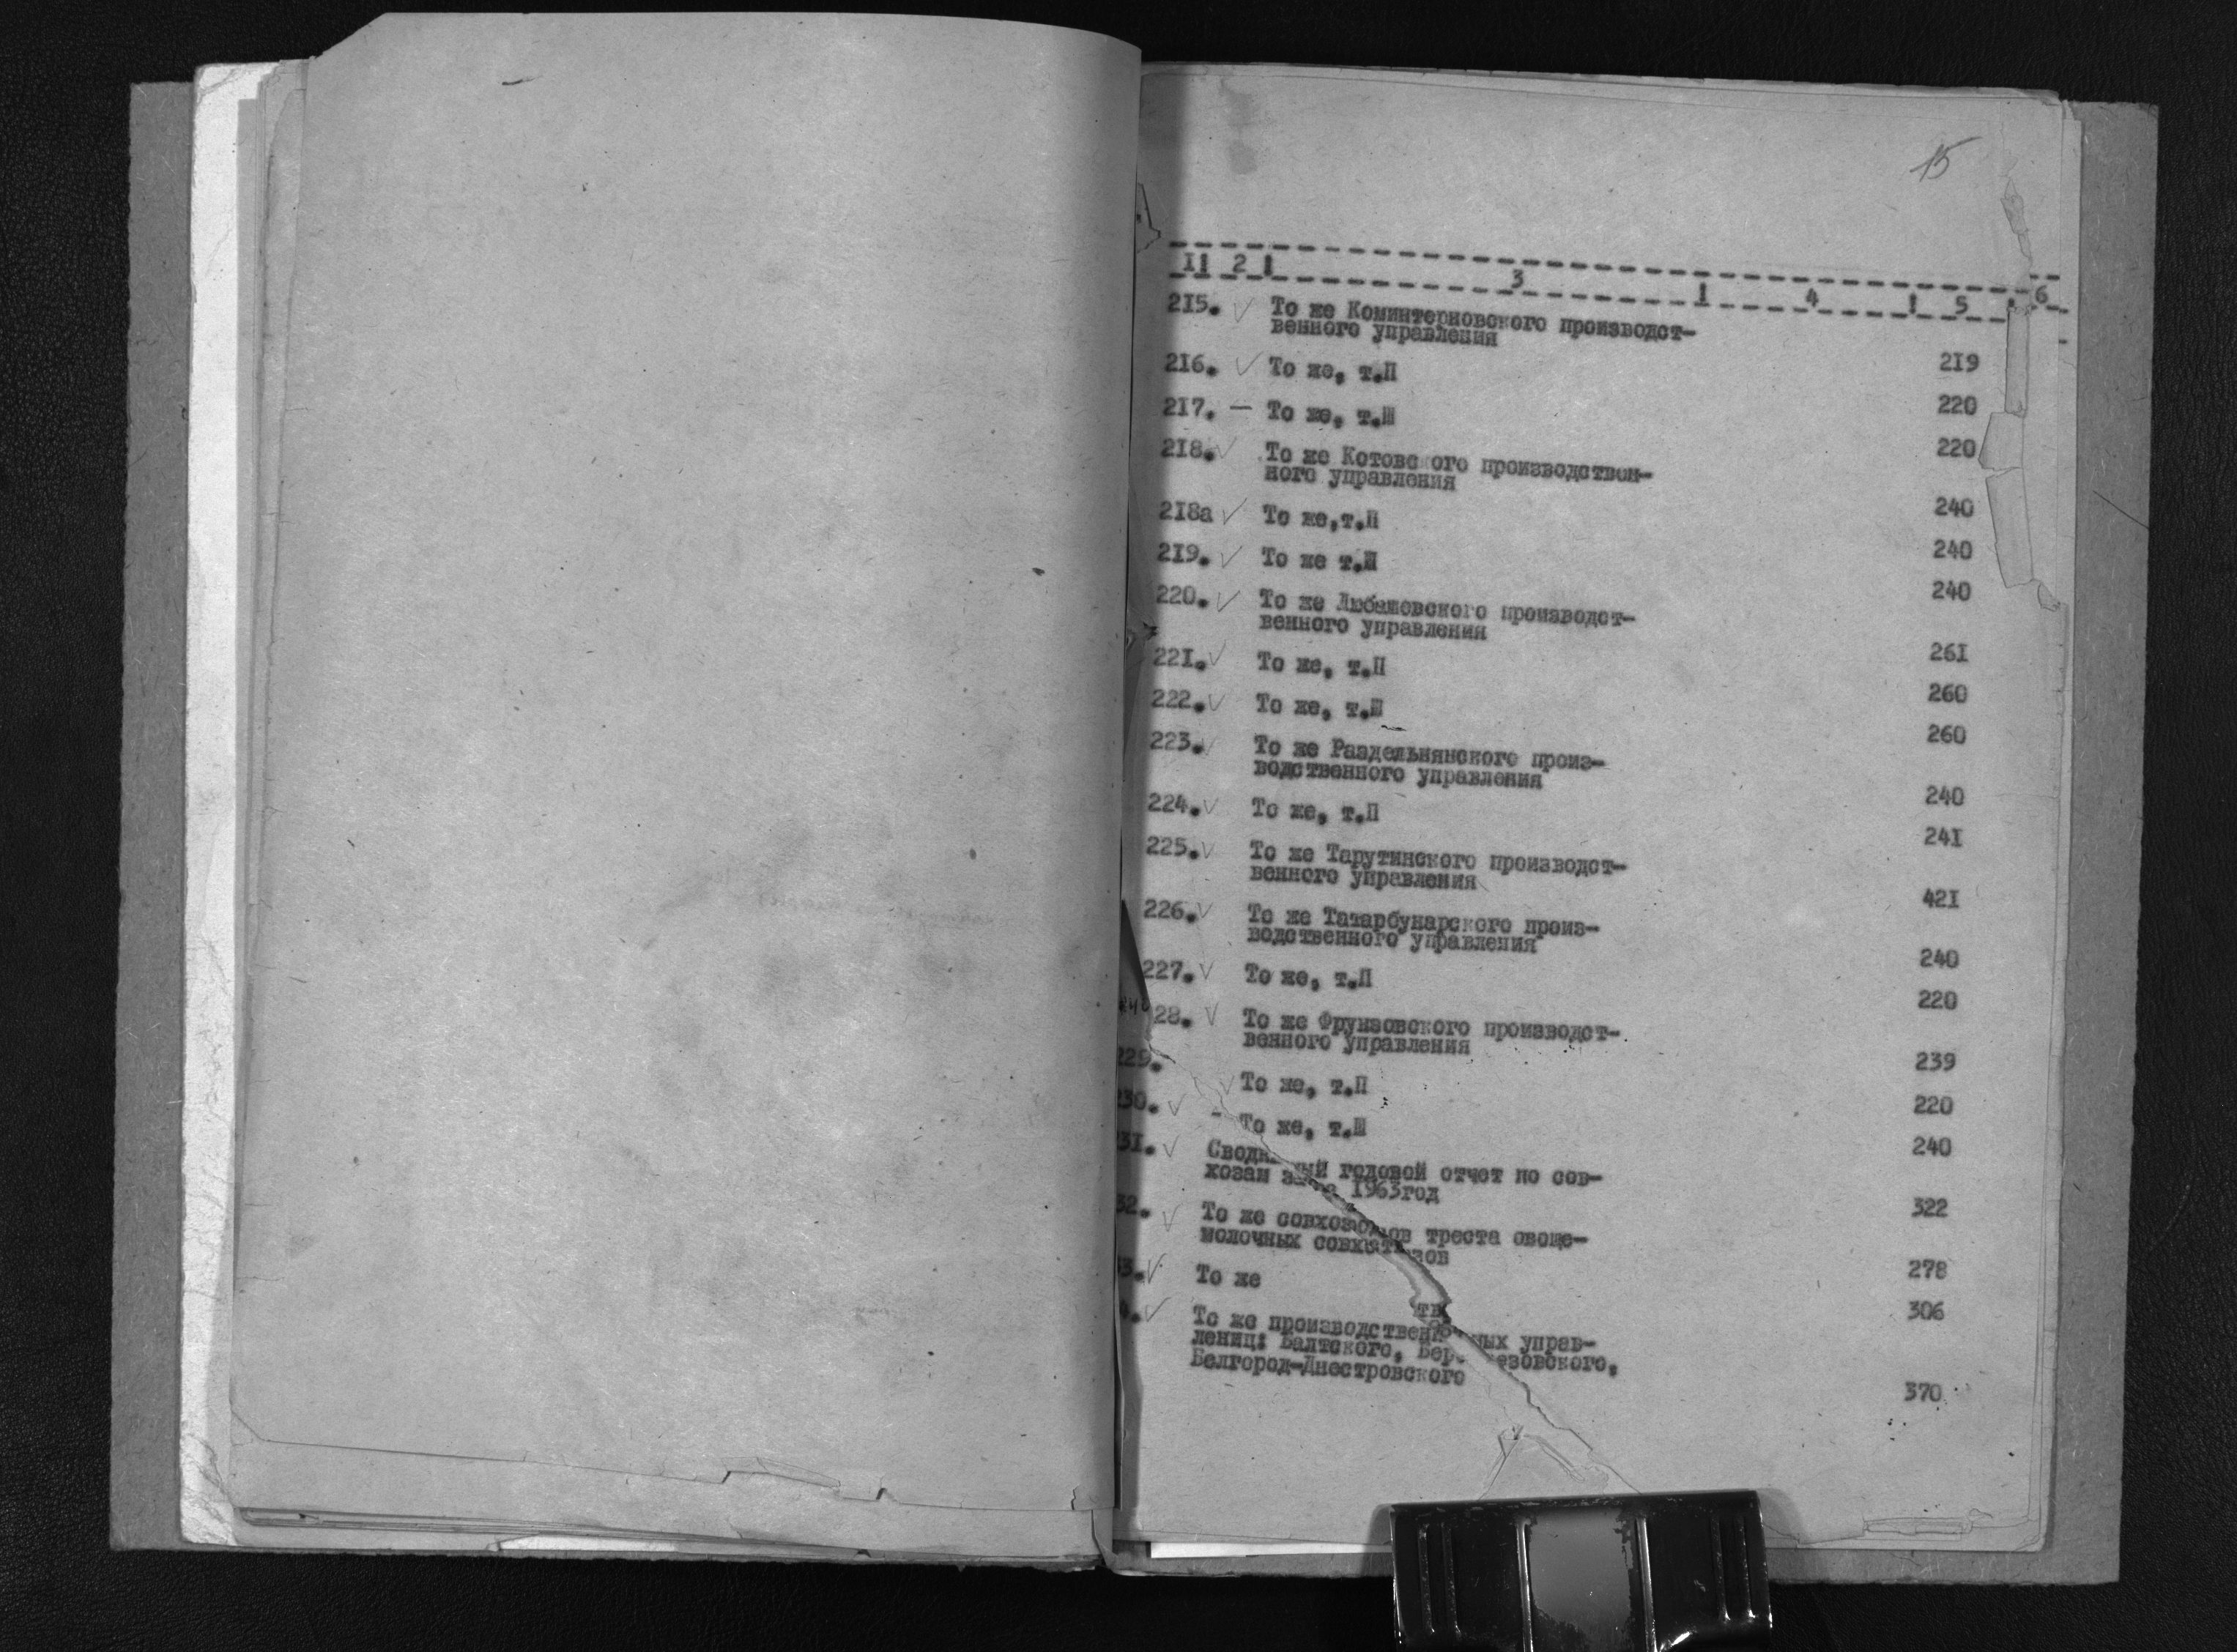 15
1! 2 ! 3 ! 4 ! 5 6
215. ✓ То же Коминтерновского производст-
венного управления 219
216. ✓ То же, т.П 220
217. — То же, т.Ш 220
218. ✓ То же Котовского производствен-
ного управления 240
218а ✓ То же,т.П 240
219. ✓ То же т.Ш 240
220. ✓ То же Любашовского производст-
венного управления 261
221. ✓ То же, т.П 260
222. ✓ То же, т.Ш 260
223. ✓ То же Раздельнянского произ-
водственного управления 240
224. ✓ То же, т.П 241
225. ✓ То же Тарутинского производст-
венного управления 421
226. ✓ То же Татарбунарского произ-
водственного управления 240
227. ✓ То же, т.П 220
28. ✓ То же Фрунзовского производст-
венного управления 239
229. ✓ То же, т.П 220
30. ✓ - То же, т.Ш 240
31. ✓ Сводный годовой отчет по сов-
хозам за 1963год 322
32. ✓ То же совхозов треста овоще-
молочных совхозов 278
3. ✓ То же 306
4. ✓ То же производственных управ-
лениц: Балтского, Березовского,
Белгород-Днестровского 370